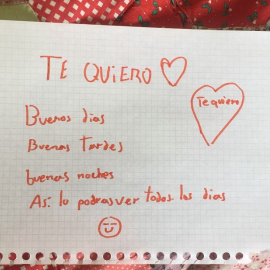 TE QUIERO
Te quiero
Buenos dias
Buenas Tardes
buenas noches
Así lo podras ver todos los dias